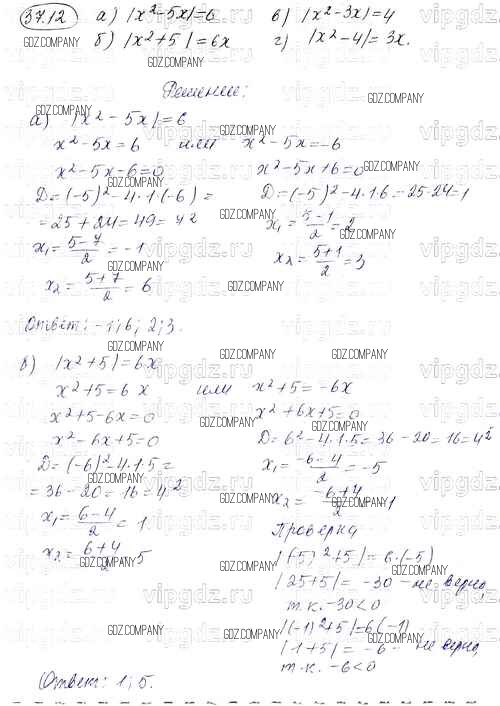 37.12 а) |x²-5x|=6 в) |x²-3x|=4
б) |x²+5|=6x г) |x²-4|=3x.
Решение:
а) |x²-5x|=6
x²-5x=6 или x²-5x=-6
x²-5x-6=0 x²-5x+6=0
D=(-5)²-4·1·(-6)= D=(-5)²-4·1·6=25-24=1
=25+24=49=7² x₁=(5-1)/2=2
x₁=(5-7)/2=-1 x₂=(5+1)/2=3
x₂=(5+7)/2=6
Ответ: -1; 6; 2; 3.
б) |x²+5|=6x
x²+5=6x или x²+5=-6x
x²+5-6x=0 x²+6x+5=0
x²-6x+5=0 D=6²-4·1·5=36-20=16=4²
D=(-6)²-4·1·5= x₁=(-6-4)/2=-5
=36-20=16=4² x₂=(-6+4)/2=-1
x₁=(6-4)/2=1 Проверка
x₂=(6+4)/2=5 |(-5)²+5|=6·(-5)
|25+5|=-30 - не верно,
т.к. -30<0
|(-1)²+5|=6(-1)
|1+5|=-6 - не верно,
т.к. -6<0
Ответ: 1; 5.
GDZ.COMPANY
vipgdz.ru